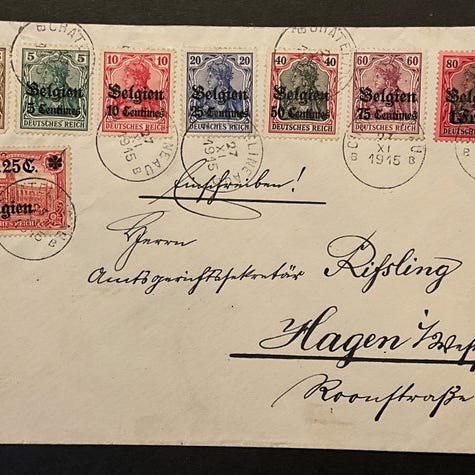 5 5 10 10 20 20 40 40 60 60 80
Belgien Belgien Belgien Belgien Belgien
5 Centimes 10 Centimes 25 Centimes 50 Centimes 75 Centimes
DEUTSCHES REICH DEUTSCHES REICH DEUTSCHES REICH DEUTSCHES REICH DEUTSCHES REICH
27
XI
1915
B B
25 C.
Einschreiben!
Herrn
Amtsgerichtssekretär Rißling
Hagen i/West
Roonstraße